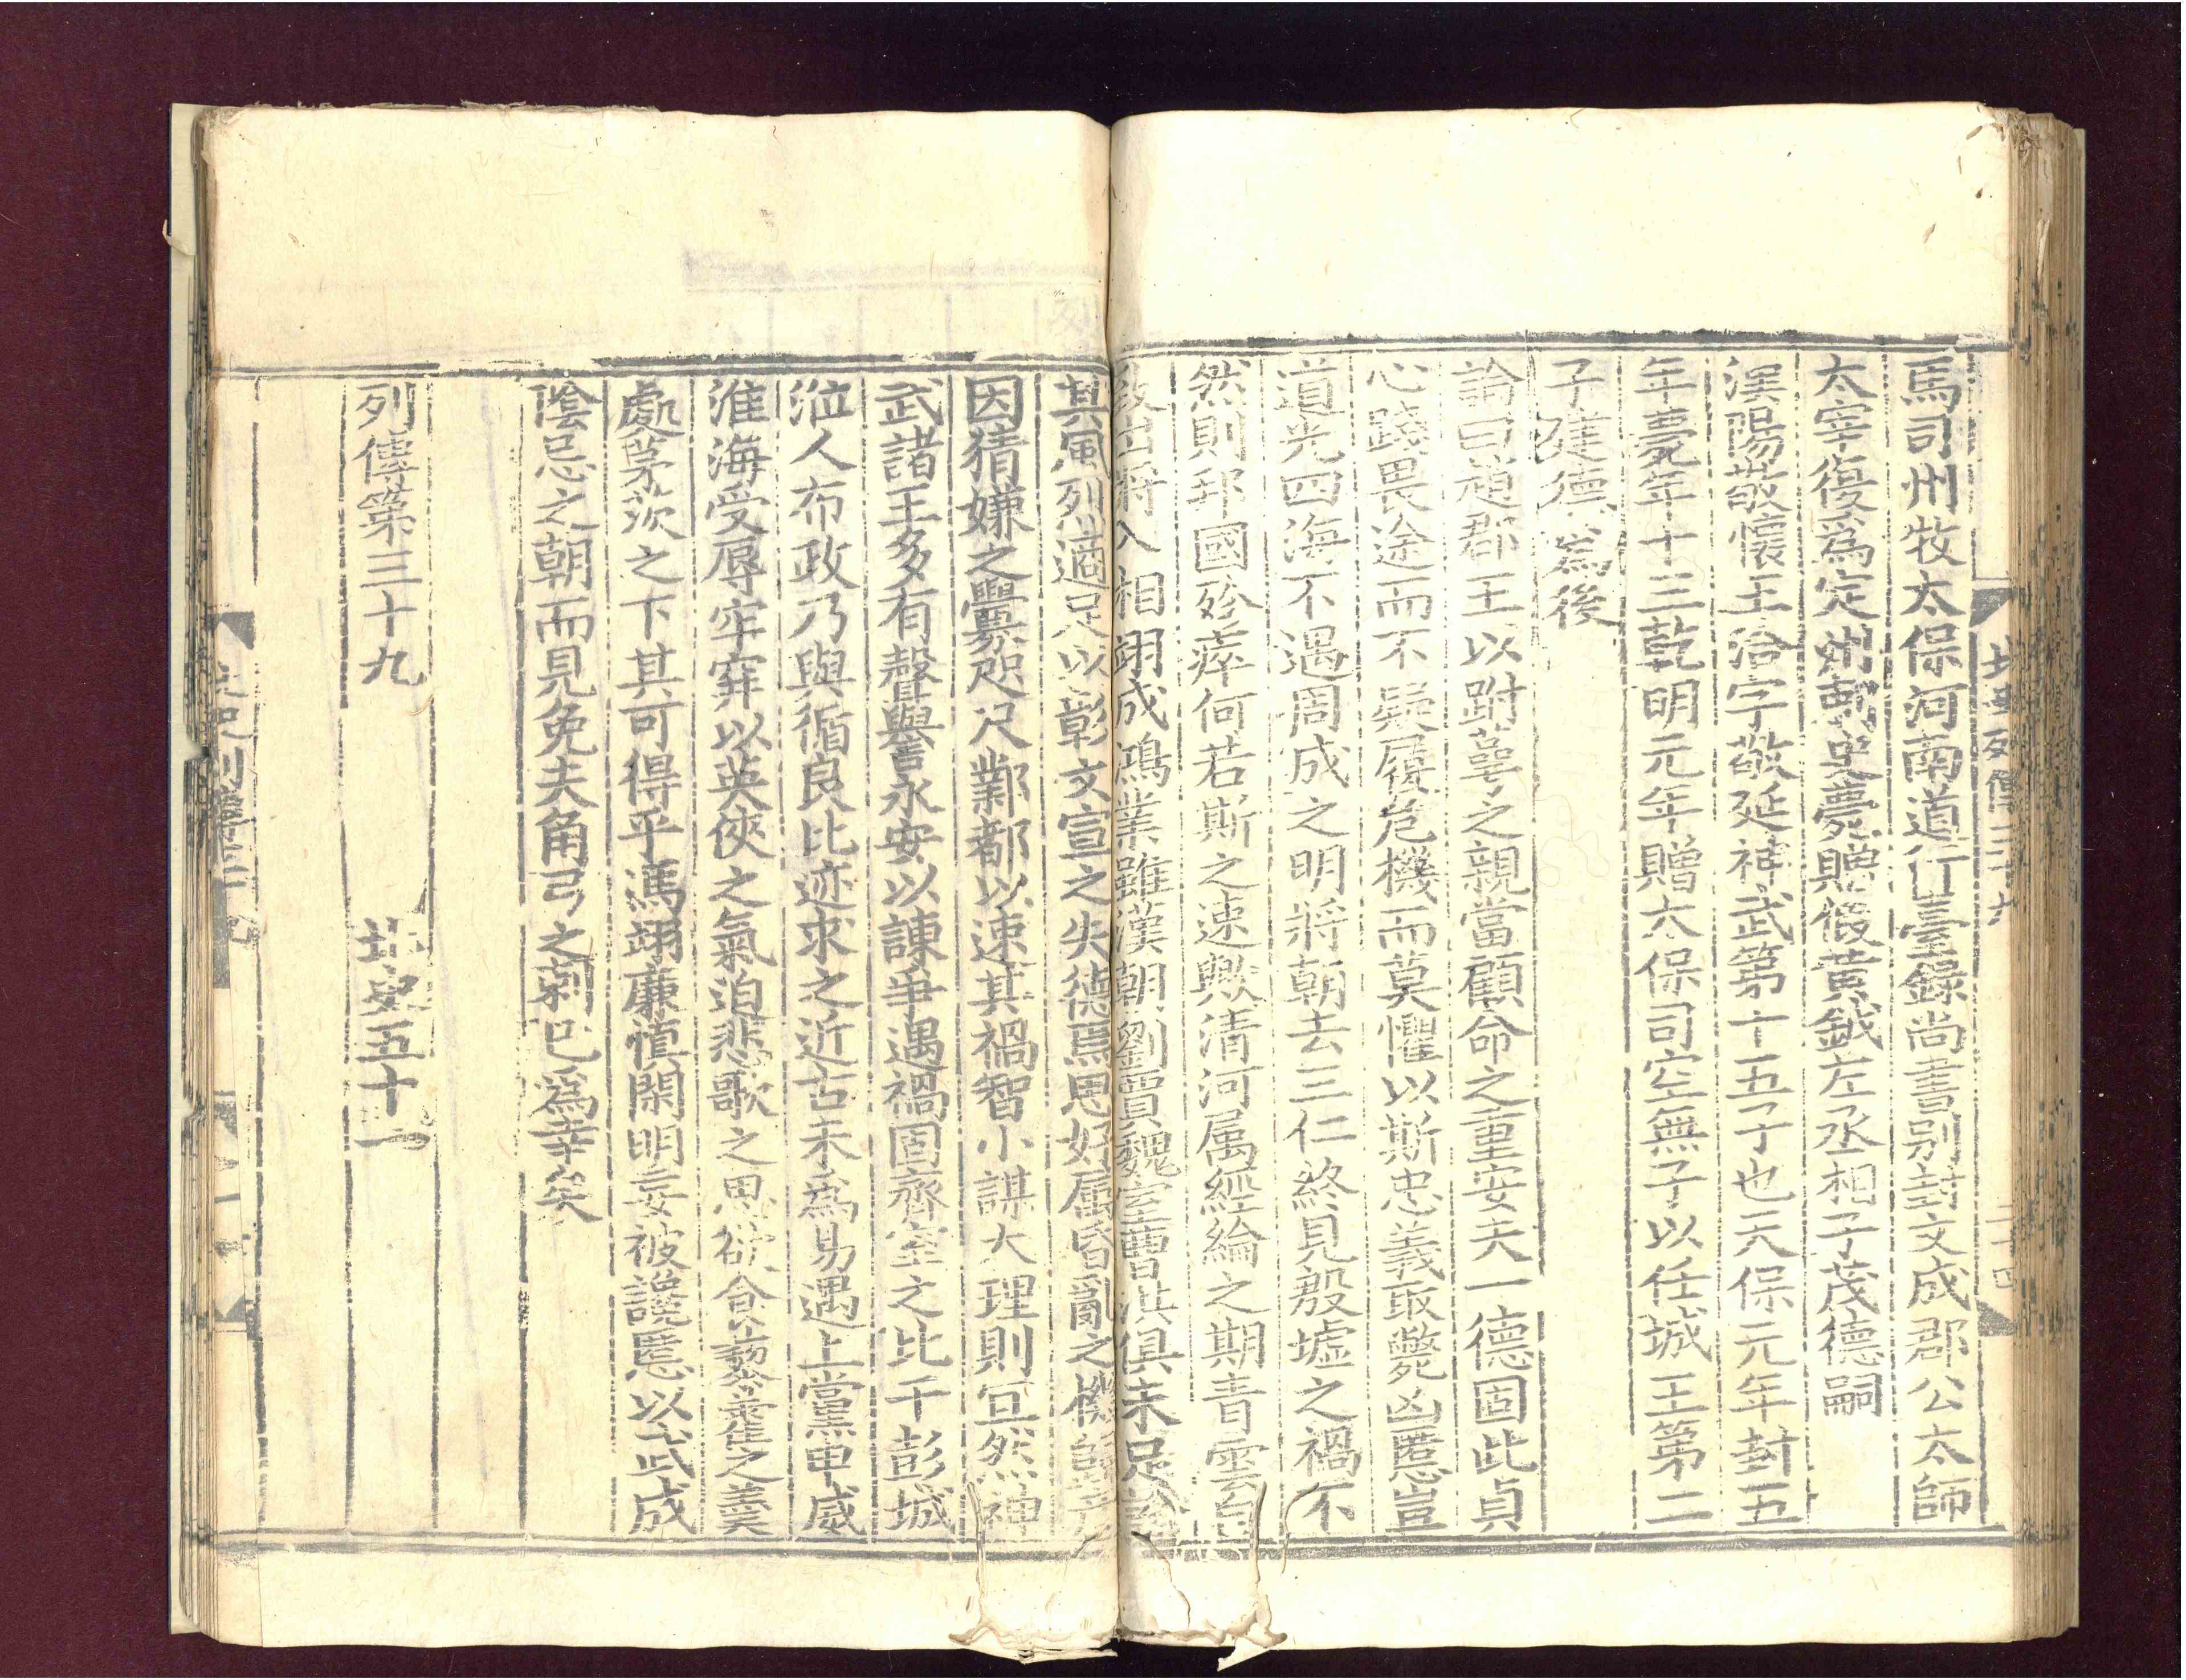 馬司州牧太保河南道行臺錄尚書别封文成郡公太師
太宰復爲定州刺史薨贈假黃鉞左丞相子茂德嗣
漢陽敬懷王洽字敬延神武第十五子也天保元年封五
年薨年十三乾明元年贈太保司空無子以任城王第二
子建德爲後
論曰趙郡王以跗萼之親當顧命之重安夫一德固此貞
心踐畏途而不疑履危機而莫懼以斯忠義取斃凶慝豈
道光四海不遇周成之明將朝去三仁終見殷墟之禍不
然則邦國殄瘁何若斯之速歟清河属經綸之期青雲自
致出將入相翊成鴻業雖漢朝劉賈魏室曹洪俱未足論
其風烈適足以彰文宣之失德焉思好属昏亂之機
因猜嫌之釁咫尺鄴都以速其禍智小謀大理則宜然神
武諸王多有聲譽永安以諫爭遇禍固齊室之比干彭城
涖人布政乃與循良比迹求之近古未爲易遇上黨申威
淮海受辱牢穽以英俠之氣迫悲歌之思欲食藜藿之羹
處茅茨之下其可得乎馮翊廉慎閑明妄被讒慝以武成
陰忌之朝而見免夫角弓之刺已爲幸矣
列傳第三十九 北史五十一
北史列傳三十九
二十四